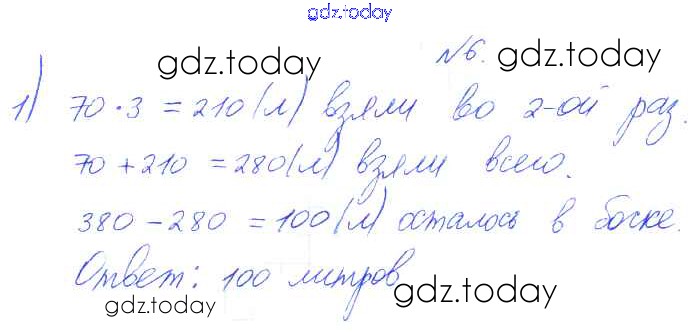 gdz.today
gdz.today №6. gdz.today
1) 70 · 3 = 210 (л) взяли во 2-ой раз.
70 + 210 = 280 (л) взяли всего.
380 - 280 = 100 (л) осталось в бочке.
Ответ: 100 литров
gdz.today gdz.today